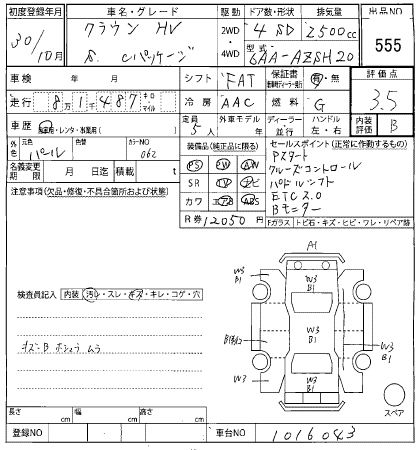 初度登録年月 車名・グレード 駆動 ドア数・形状 排気量 出品NO
30/10月 クラウン HV 2WD 4 SD 2500cc 555
S. Cパッケージ 4WD 型式 6AA-AZSH20
車検 年 月 シフト FAT 保証書 有・無 評価点
走行 8万1487 キロ マイル 冷房 AAC 燃料 G 3.5
車歴 自家用・レンタ・事業用( ) 定員 5人 外車モデル 年 ディーラー 並行 ハンドル 左・右 内装評価 B
外色 元色 パール 色替 カラーNO 062
装備品(純正品に限る) セールスポイント(正常に作動するもの)
名義変更期限 月 日迄 積載 t
PS PW AW
SR TV ナビ
カワ エアB ABS
R券 12050円
Pスタート
クルーズコントロール
パドルシフト
ETC2.0
Bモニター
注意事項(欠品・修復・不具合箇所および状態)
Fガラス トビ石・キズ・ヒビ・ワレ・リペア跡
検査員記入 内装(汚レ・スレ・キズ・キレ・コゲ・穴
キズ・B ホシュウ ムラ
A1
W3
B1
W3
B1
W3
B1
W3
B1
W3
W3
B1
スペア
長さ cm 幅 cm 高さ cm
登録NO 車台NO 1016043